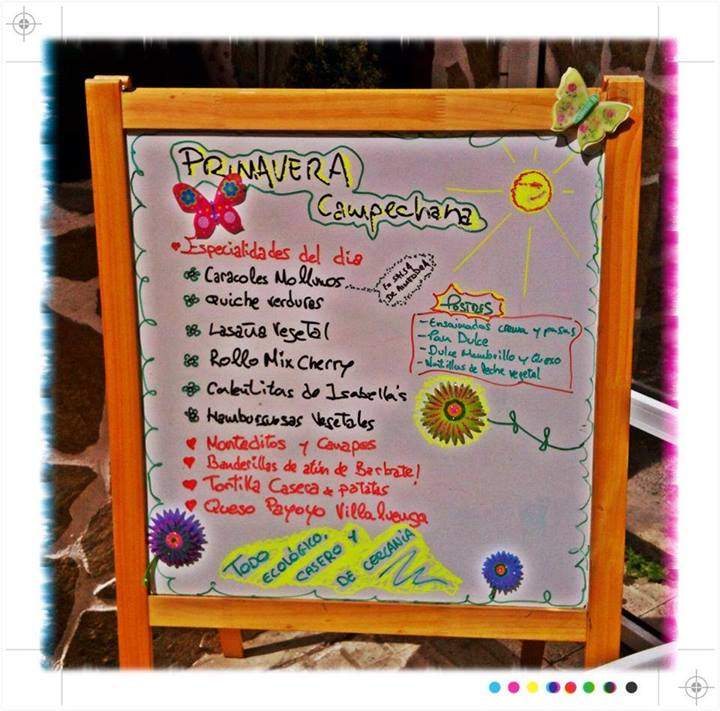 PRIMAVERA
Campechana
Especialidades del día
Caracoles Mollinos
EN SALSA
DE ALMENDRA
Quiche verduras
Lasaña Vegetal
Rollo Mix Cherry
Calentitas de Isabella's
Hamburguesas Vegetales
Montaditos y Canapes
Banderillas de atún de Barbate!
Tortilla Casera de patatas
Queso Payoyo Villaluenga
POSTRES
- Ensaimadas crema y pasas
- Pan Dulce
- Dulce Membrillo y Queso
- Natillas de leche vegetal
TODO
ECOLÓGICO,
CASERO Y
DE CERCANÍA